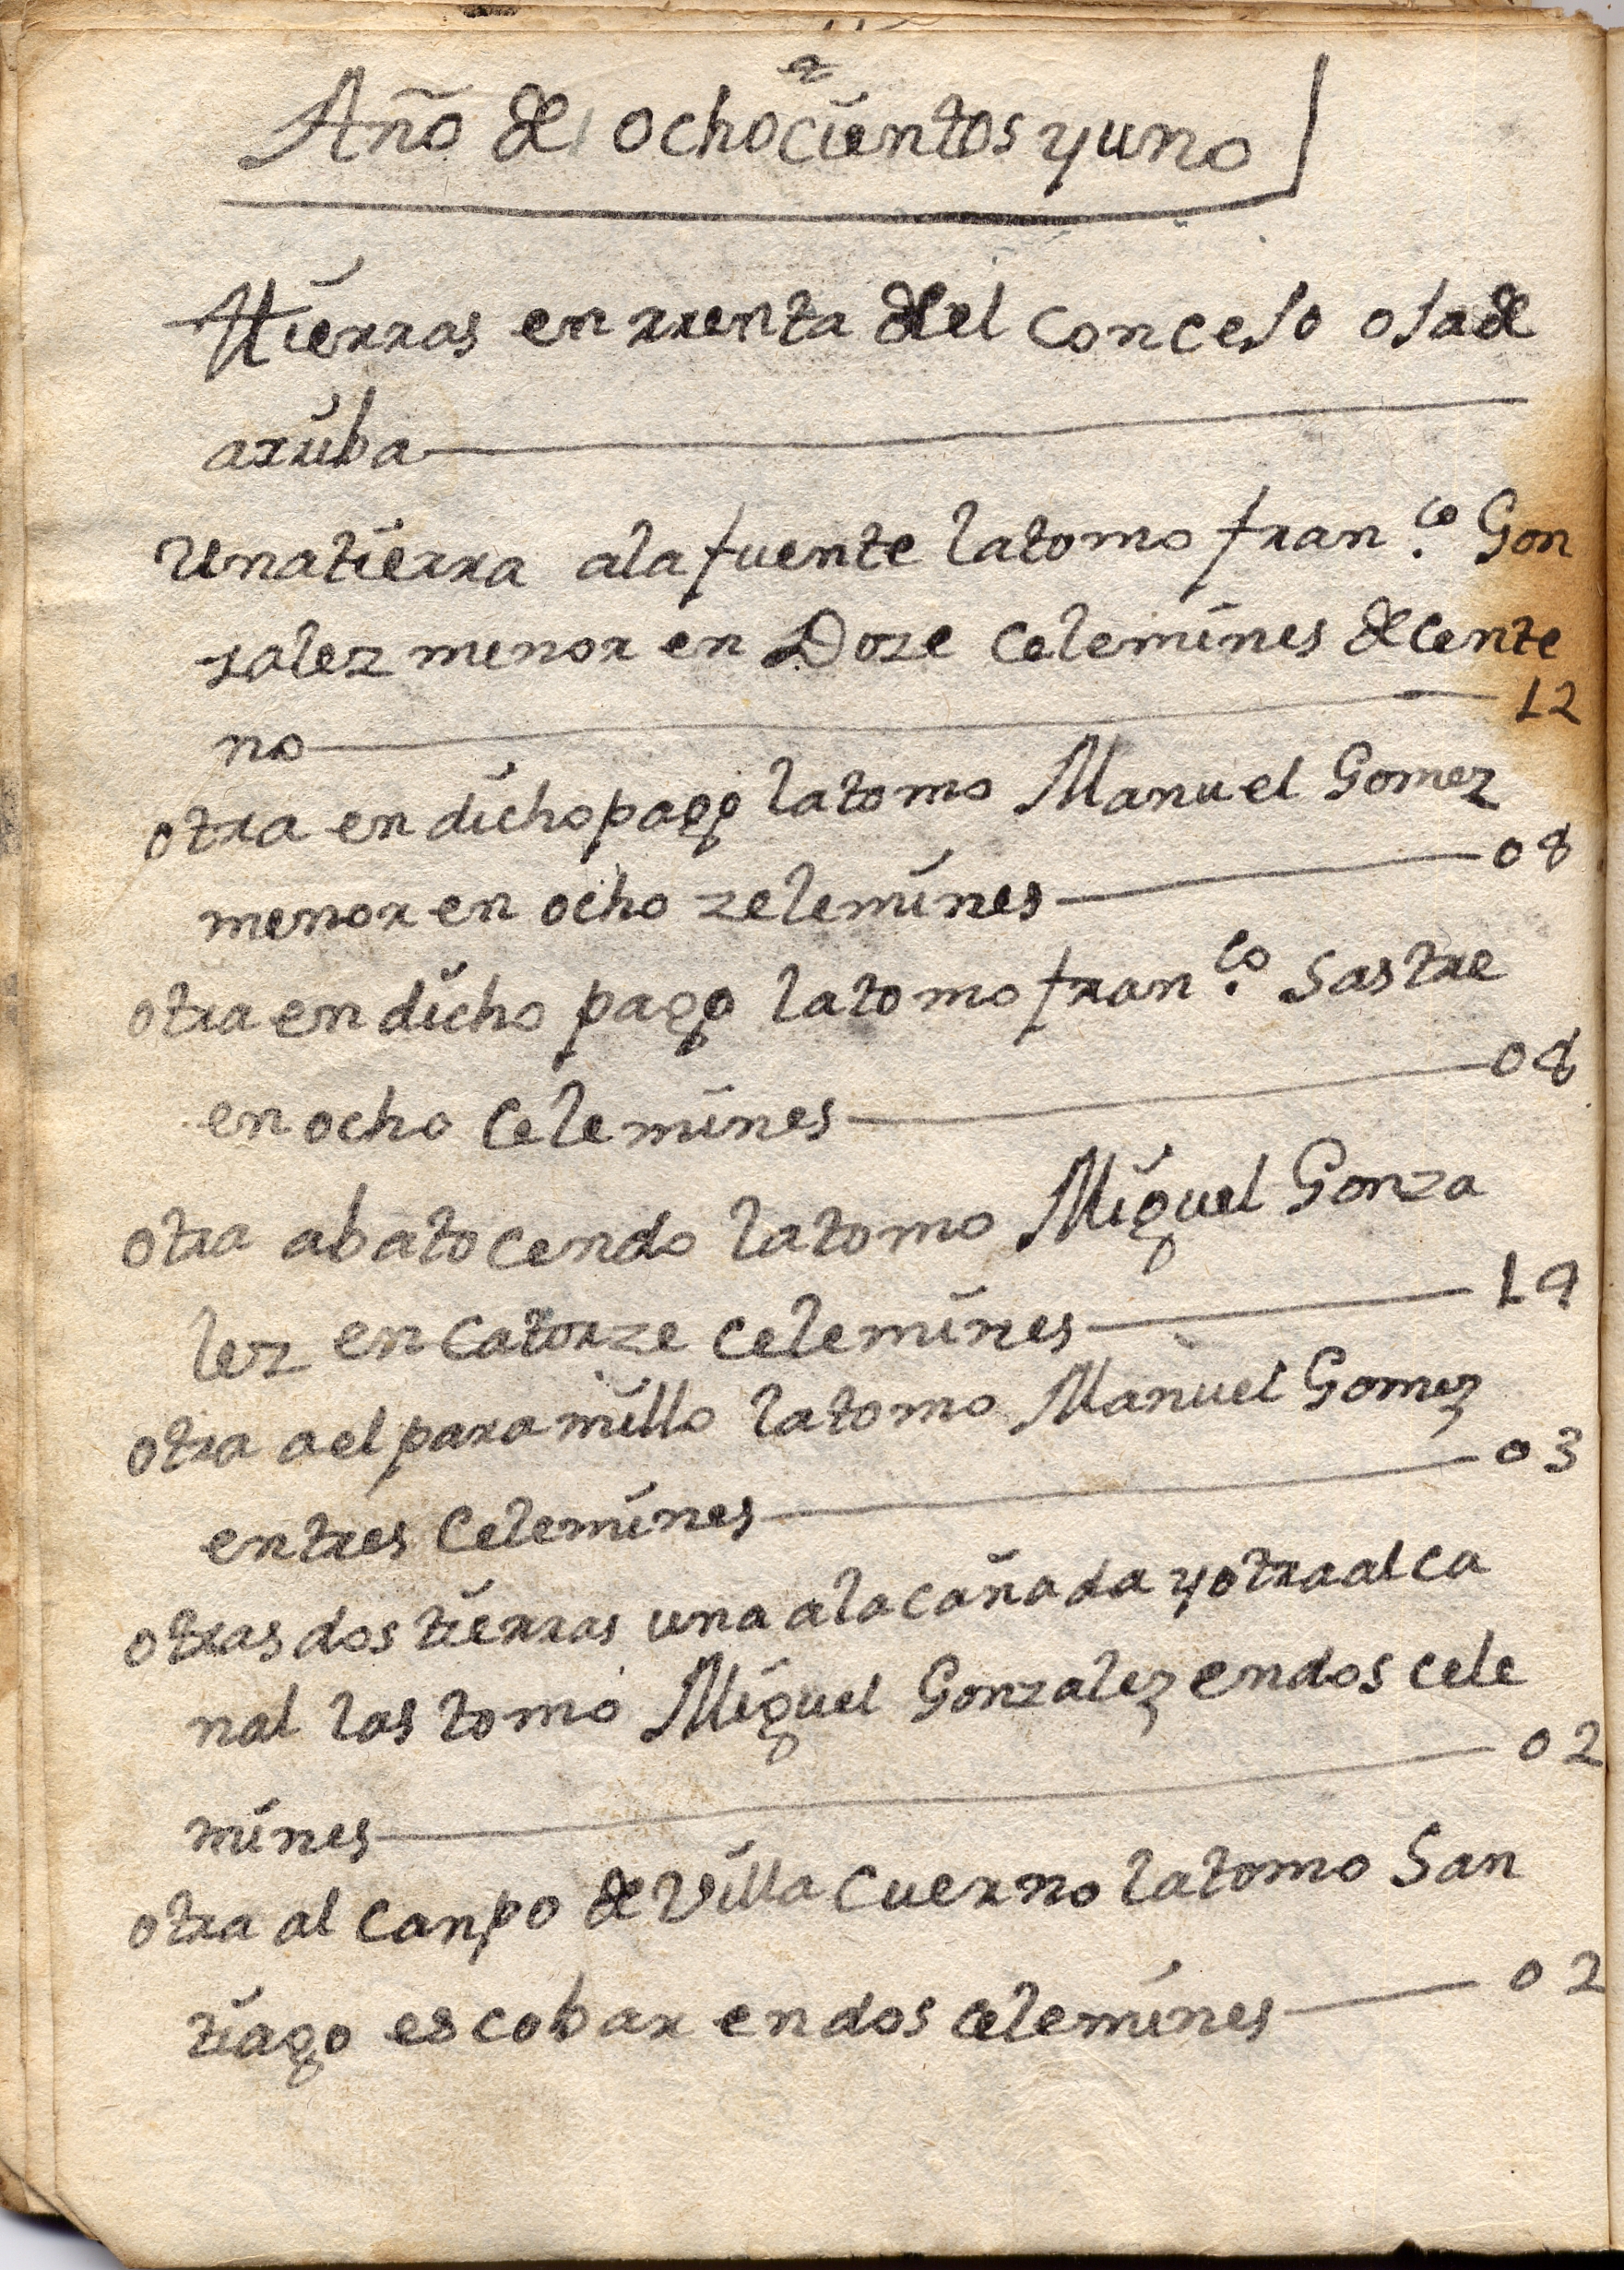 Año de ochocientos y uno
Ttierras en rrenta del Concejo oja de
arriba
Una tierra a la fuente la tomo Fran.co Gon
zalez menor en Doze Celemines de cente
no 12
otra en dicho pago la tomo Manuel Gomez
menor en ocho zelemines 08
otra en dicho pago la tomo Fran.co Sastre
en ocho Celemines 08
otra abatocendo la tomo Miguel Gonza
lez en Catorze Celemines 14
otra a el paramillo la tomo Manuel Gomez
en tres Celemines 03
otras dos tierras una a la cañada y otra al ca
nal las tomo Miguel Gonzalez en dos cele
mines 02
otra al canpo de Villa Cuerno la tomo San
tiago escobar en dos celemines 02